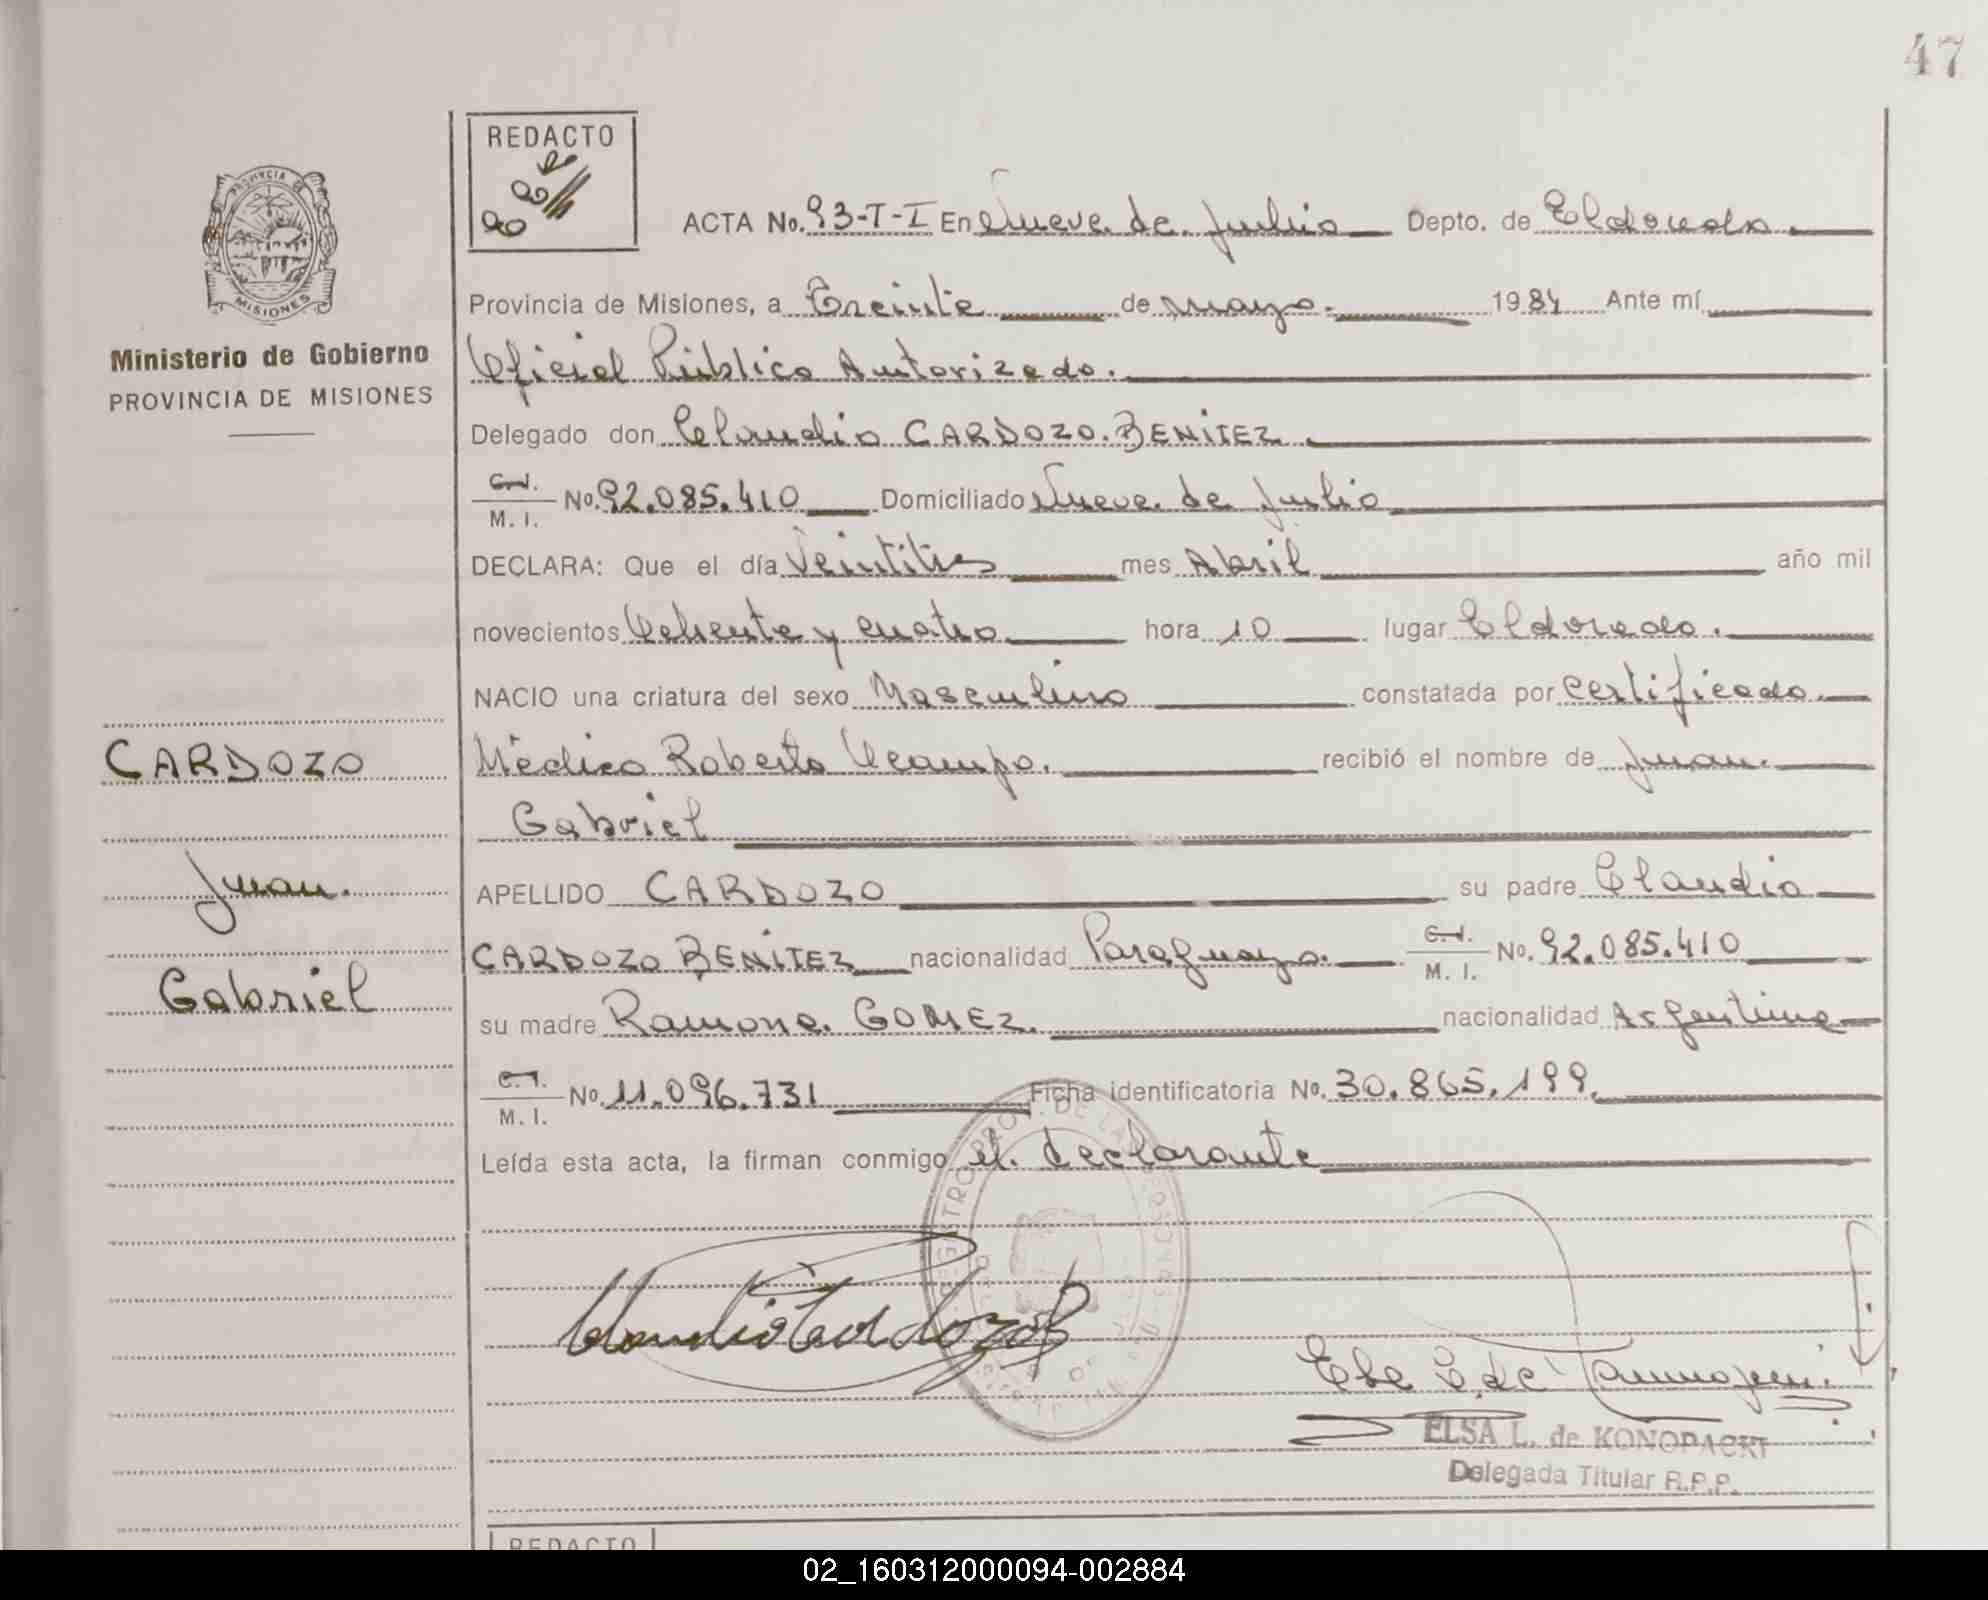 47
REDACTO
ACTA No. 93-T-I En Nueve de Julio Depto. de Eldorado.
PROVINCIA DE
MISIONES
Provincia de Misiones, a Treinta de mayo. 1984 Ante mí
Ministerio de Gobierno
PROVINCIA DE MISIONES
Oficial Público Autorizado.
Delegado don Claudio CARDOZO BENITEZ
C.I.
M. I. No. 92.085.410 Domiciliado Nueve de Julio
DECLARA: Que el día Veintitres mes Abril año mil
novecientos Ochenta y cuatro hora 10 lugar Eldorado.
NACIO una criatura del sexo Masculino constatada por certificado
CARDOZO
Médico Roberto Ocampo. recibió el nombre de Juan
Gabriel
Juan.
APELLIDO CARDOZO su padre Claudio
CARDOZO BENITEZ nacionalidad Paraguayo. C.I. M. I. No. 92.085.410
Gabriel
su madre Ramona GOMEZ. nacionalidad Argentina
C.I.
M. I. No. 11.096.731 Ficha identificatoria No. 30.865.199.
Leída esta acta, la firman conmigo el declarante
Claudio Cardozo B
ELSA L. de KONOPACKI
Delegada Titular R.P.P.
REDACTO
02_160312000094-002884